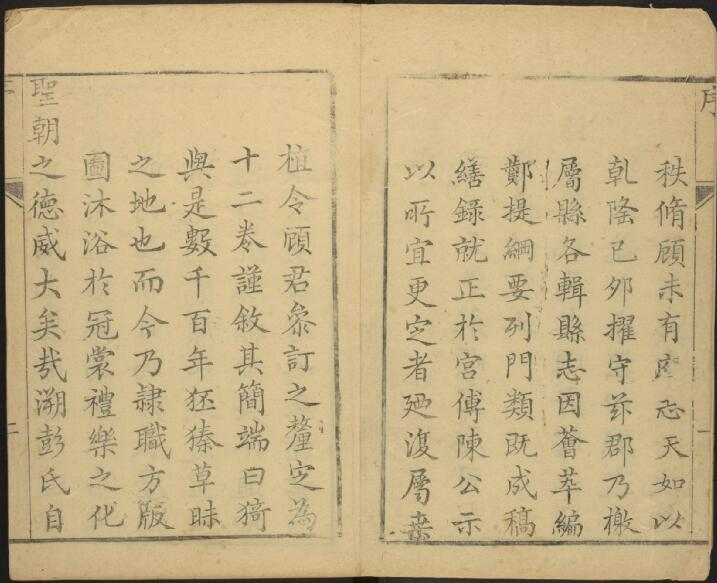 序
一
秩脩顧未有志天如以
乹隆己夘擢守茲郡乃檄
屬縣各輯縣志因薈萃編
鄭提綱要列門類既成稿
繕錄就正於宮傅陳公示
以所宜更定者廼復屬桒
植令顧君叅訂之釐定為
十二卷謹敘其簡端曰猗
與是數千百年狉獉草昧
之地也而今乃隷職方版
圖沐浴於冠裳禮樂之化
聖朝之德威大矣哉溯彭氏自